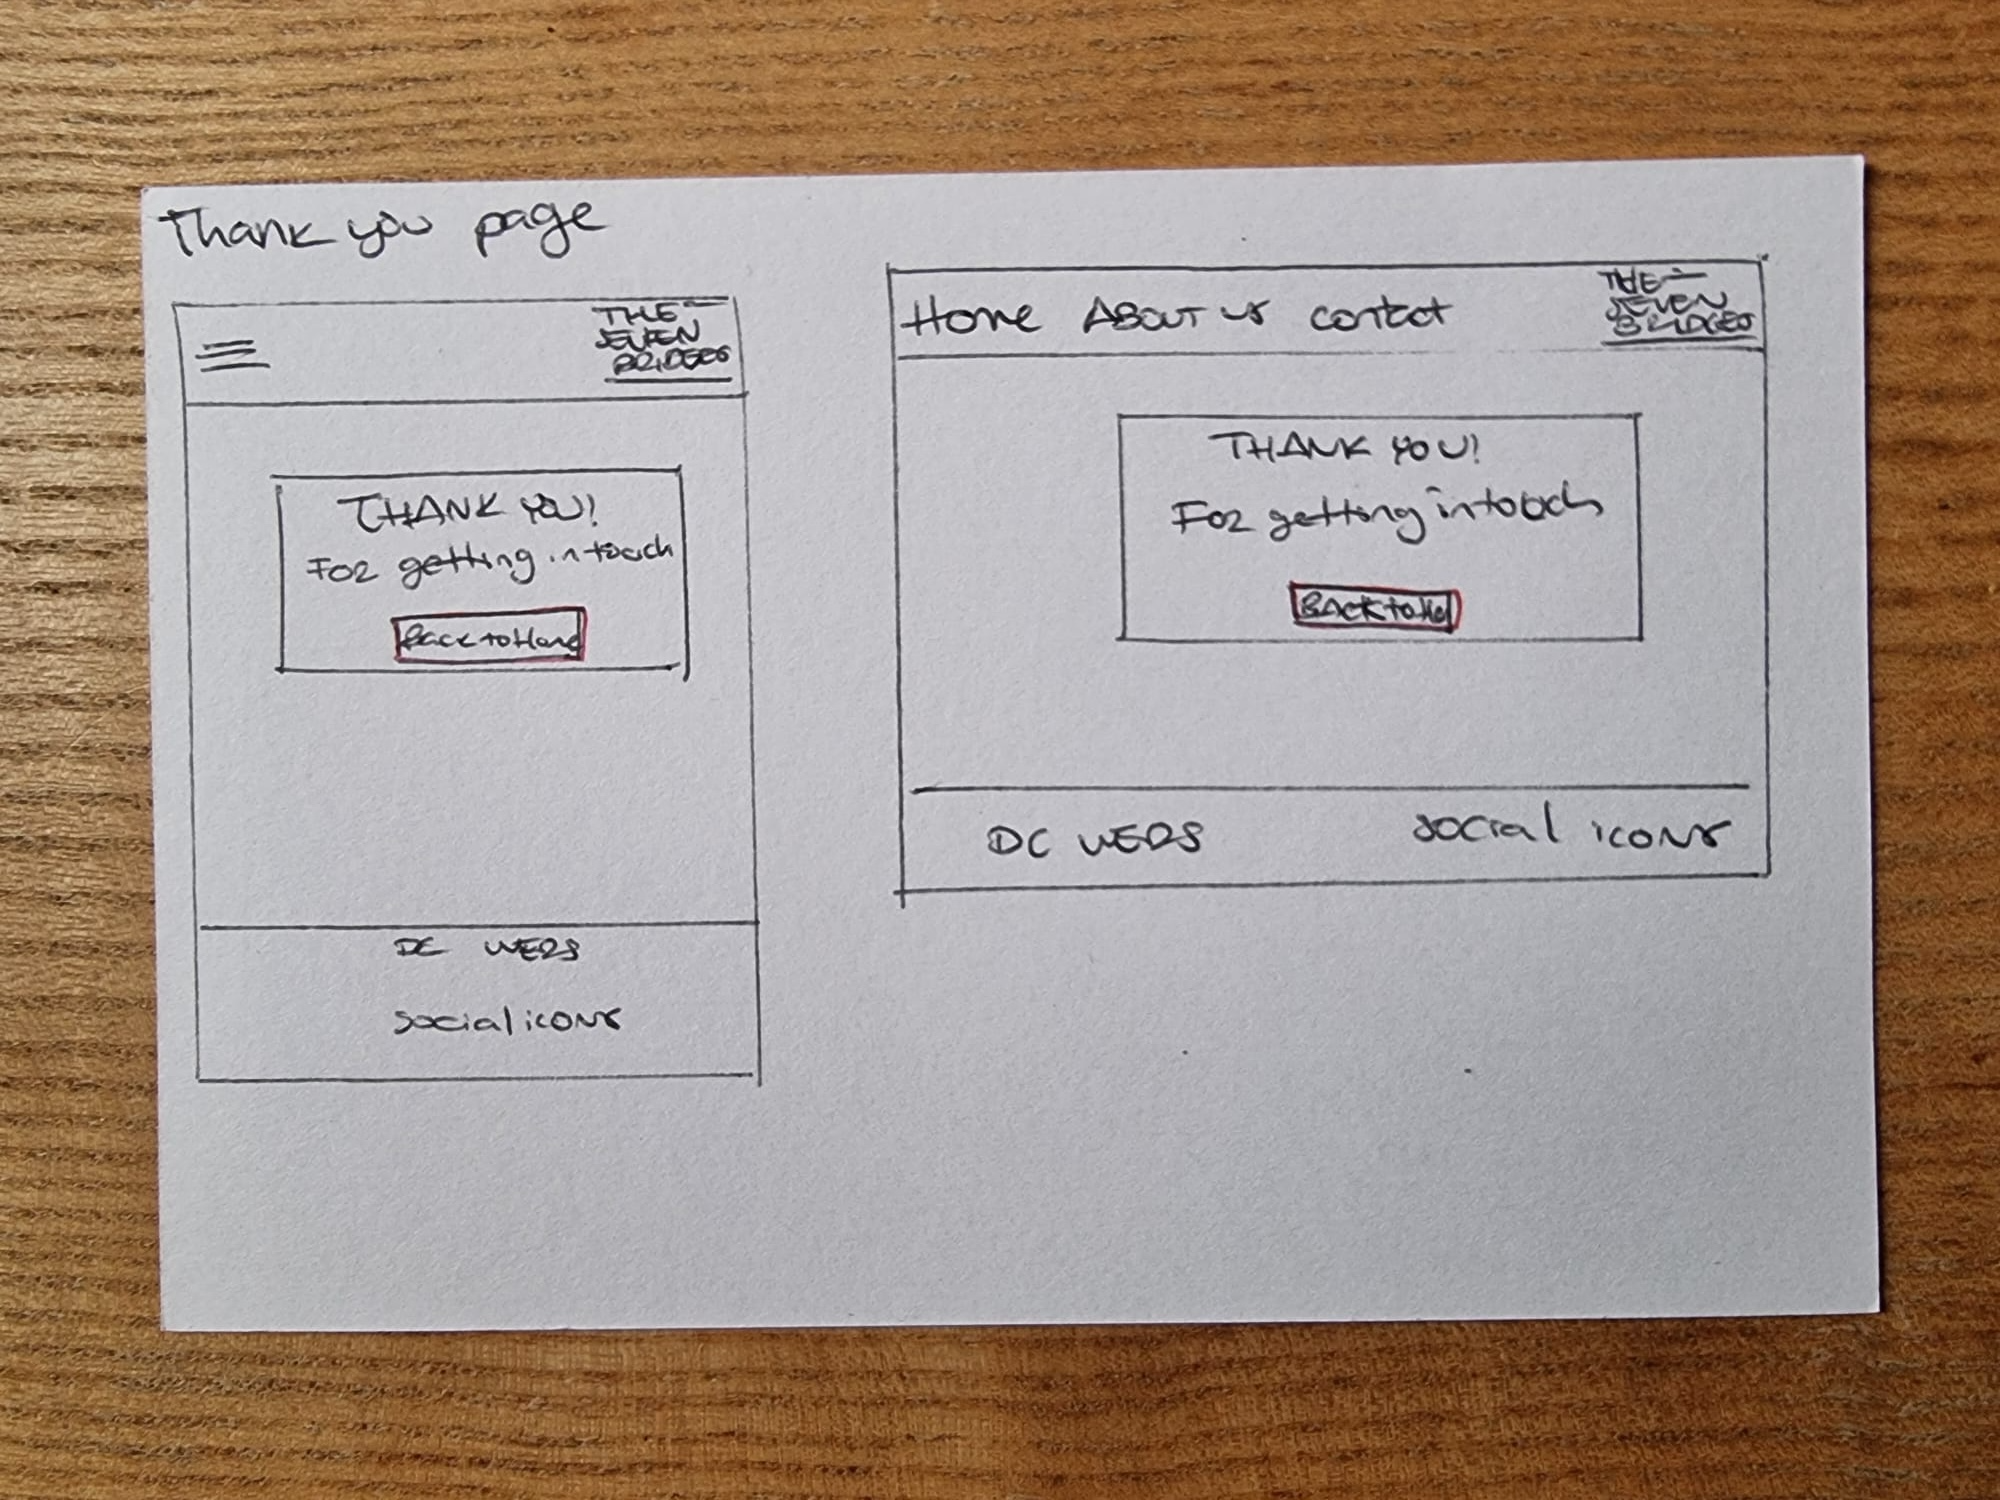 Thank you page
THE
SEVEN
BRIDGES
THANK YOU!
For getting in touch
Back to Home
DC WEBS
social icons
Home ABOUT us contact
THE
SEVEN
BRIDGES
THANK YOU!
For getting in touch
BACK to Ho
DC WEBS
social icons